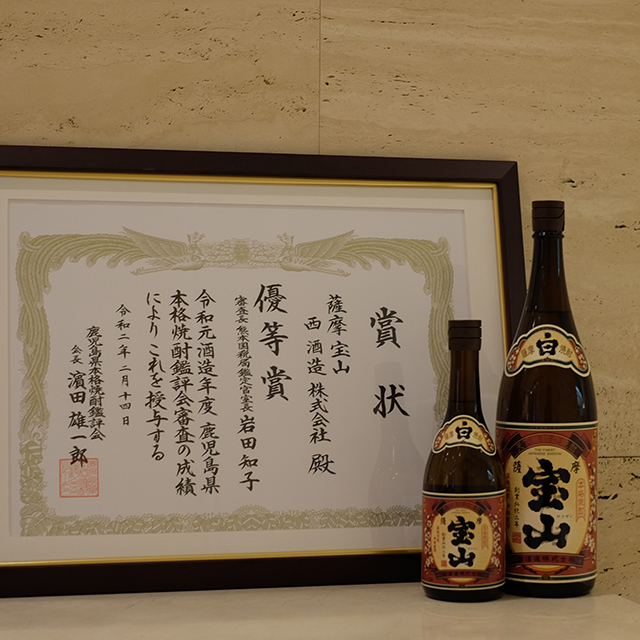 賞状
薩摩宝山
西酒造株式会社 殿
優等賞
審査長 熊本国税局鑑定官室長 岩田知子
令和元酒造年度鹿児島県
本格焼酎鑑評会審査の成績
によりこれを授与する
令和二年二月十四日
鹿児島県本格焼酎鑑評会
会長 濵田雄一郎
白
薩摩
宝山
白
薩摩
宝山
本格焼酎